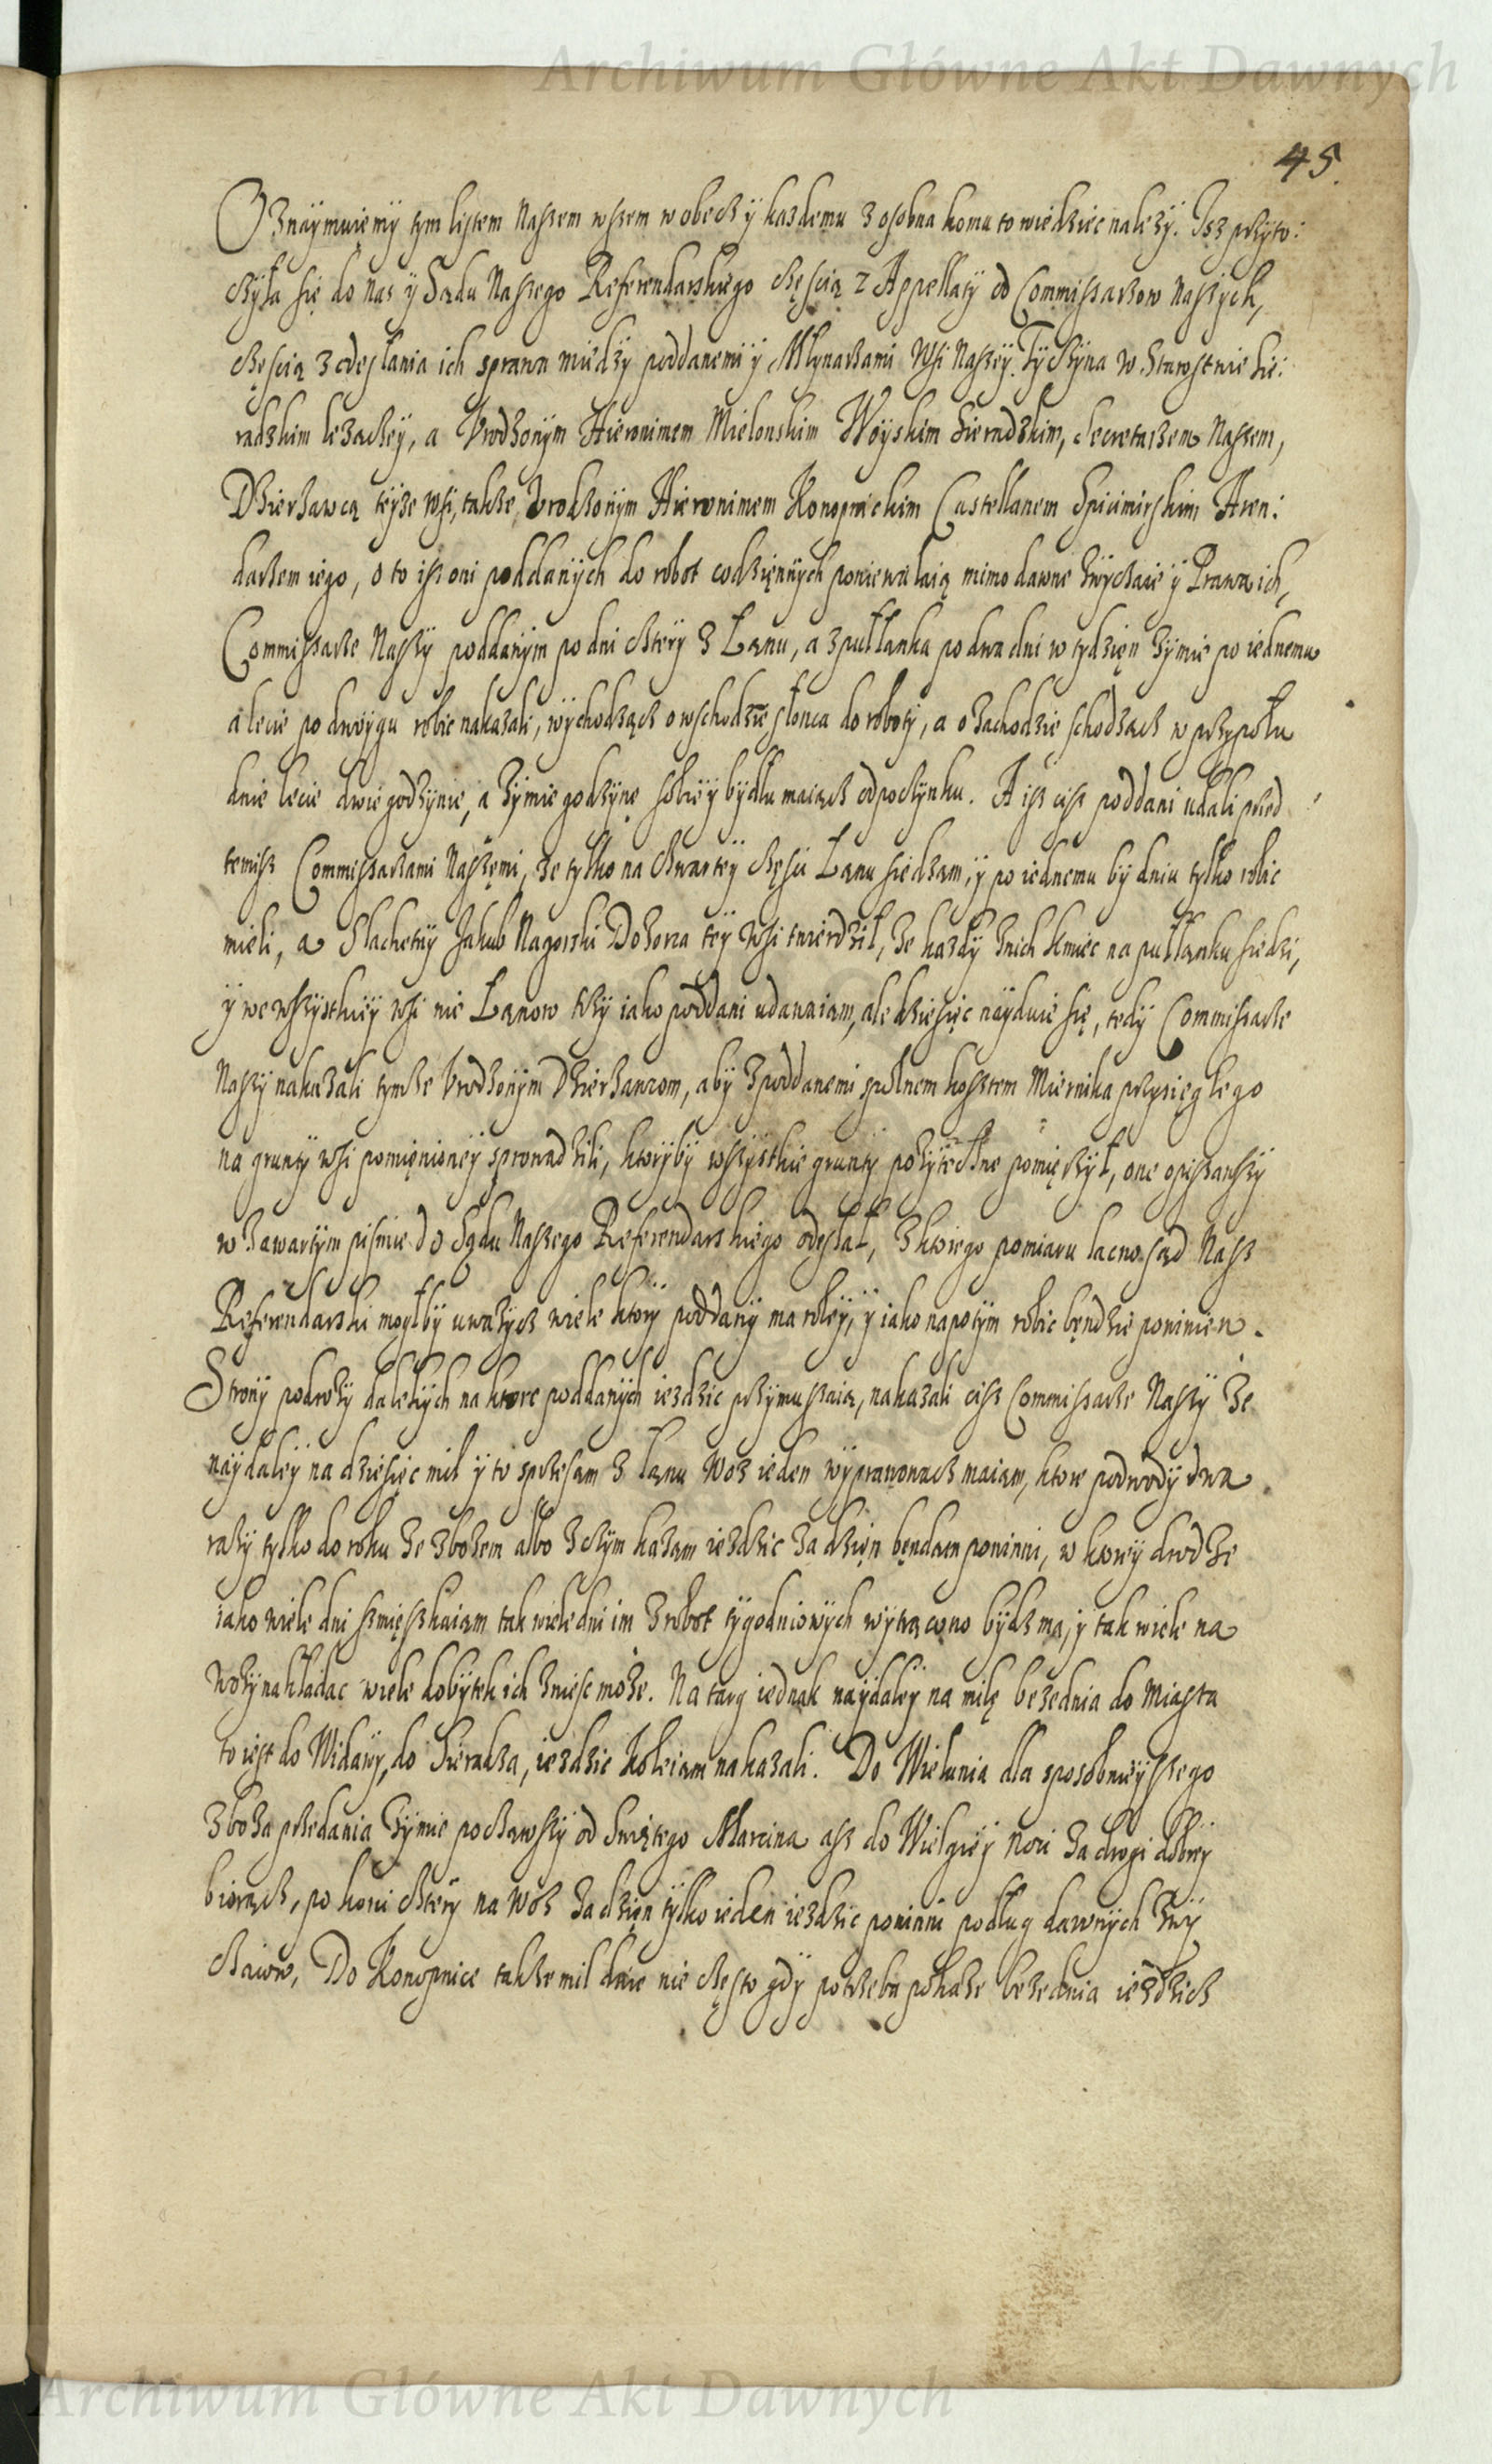 Archiwum Główne Akt Dawnych
45.
Oznaÿmuięmÿ tym listem Naszem wszem wobecz ÿ kazdemu z osobna komu to wiedziec nalezÿ. Isz przÿto:
czÿła się do nas ÿ Sądu Naszego Referendarskiego częscią z Appellatÿ od Commissarzow Naszÿch,
częscią z odesłania ich sprawa miedzÿ poddanemi ÿ Młynarzami Wsi Naszeÿ Tÿczÿna w Starostwie Sie:
radzkim lezaczeÿ, a Vrodzonÿm Hieronimem Mielonskim Woÿskim Sieradzkim, Secretarzem Naszem,
Dzierzawcą teÿze wsi, takze Vrodzonÿm Hieronimem Konopnickim Castellanem Spicimirskim Aren:
darzem iego, o to isz oni poddanÿch do robot codzięnnÿch poniewalaią mimo dawne zwÿczaie ÿ Prawa ich,
Commissarze Naszÿ poddanÿm po dni czterÿ z Łanu, a z pułłanka po dwa dni w tydzięn zÿmie po iednemu
a lecie po dwoÿgu robic nakazali, wÿchodząch o wschodzie słonca do robotÿ, a o zachodzie schodząch w przypołu
dnie lecie dwie godzÿnie, a zÿmie godzÿnę sobie ÿ bÿdłu maiącz odpoczÿnku. A isz cisz poddani udali przed
temisz Commissarzami Naszęmi, ze tylko na czwarteÿ częsci Łanu siedzam, ÿ po iednemu bÿ dniu tylko robic
mieli, a Slachetnÿ Jakub Nagorski Dozorca teÿ Wsi twierdził, ze kazdÿ z nich kmiec na pułłanku siedzi,
ÿ we wszÿstkieÿ wsi nie Łanow trzÿ iako poddani udawaiam, ale dziesięc naÿduie się, tedÿ Commissarze
Naszÿ nakazali tymze Vrodzonÿm Dzierzawcom, abÿ z poddanemi społnem kosztem Miernika przysięglego
na gruntÿ wsi pomięnioneÿ sprowadzili, ktorÿbÿ wszÿstkie gruntÿ pozÿteczne pomięrzÿł, one opisawszÿ
w zawartÿm pismie do Sądu Naszego Referendarskiego odesłał, z ktorego pomiaru lacno sąd Nasz
Referendarski mogłbÿ uwazÿcz wiele ktorÿ poddanÿ ma roleÿ, ÿ iako napotÿm robic będzie powinien.
Stronÿ podrozÿ dalekiÿch na ktore poddanÿch iezdzic przÿmuszaią, nakazali cisz Commissarze Naszÿ ze
naÿdaleÿ na dziesięc mil ÿ to sprzesam z łanu Woz ieden wÿprawowacz maiam, ktore podwodÿ dwa
razÿ tylko do roku ze zbozem albo z czÿm kazam iezdzic za dzięn będam powinni, w ktoreÿ drodze
iako wiele dni zmięszkaiam tak wiele dni im z robot tÿgodniowÿch wÿtrącono bÿdz ma, ÿ tak wiele na
wozÿ nakładac wiele dobÿtek ich zniesc moze. Na targ iednak naÿdaleÿ na milę bezednia do Miasta
to iest do Widawÿ, do Sieradza, iezdzic koleiam nakazali. Do Wielunia dla sposobnieÿszego
zboza przedania zÿmie poczawszÿ od Swiętego Marcina asz do Wielgieÿ Noci za drogi dobreÿ
biorącz, po koni czterÿ na Woz za dzięn tÿlko ieden iezdzic powinni podług dawnÿch zwÿ
czaiow, Do Konopnice takze mil dwie nie często gdÿ potrzeba pokaze bezednia iezdzicz
Archiwum Główne Akt Dawnych